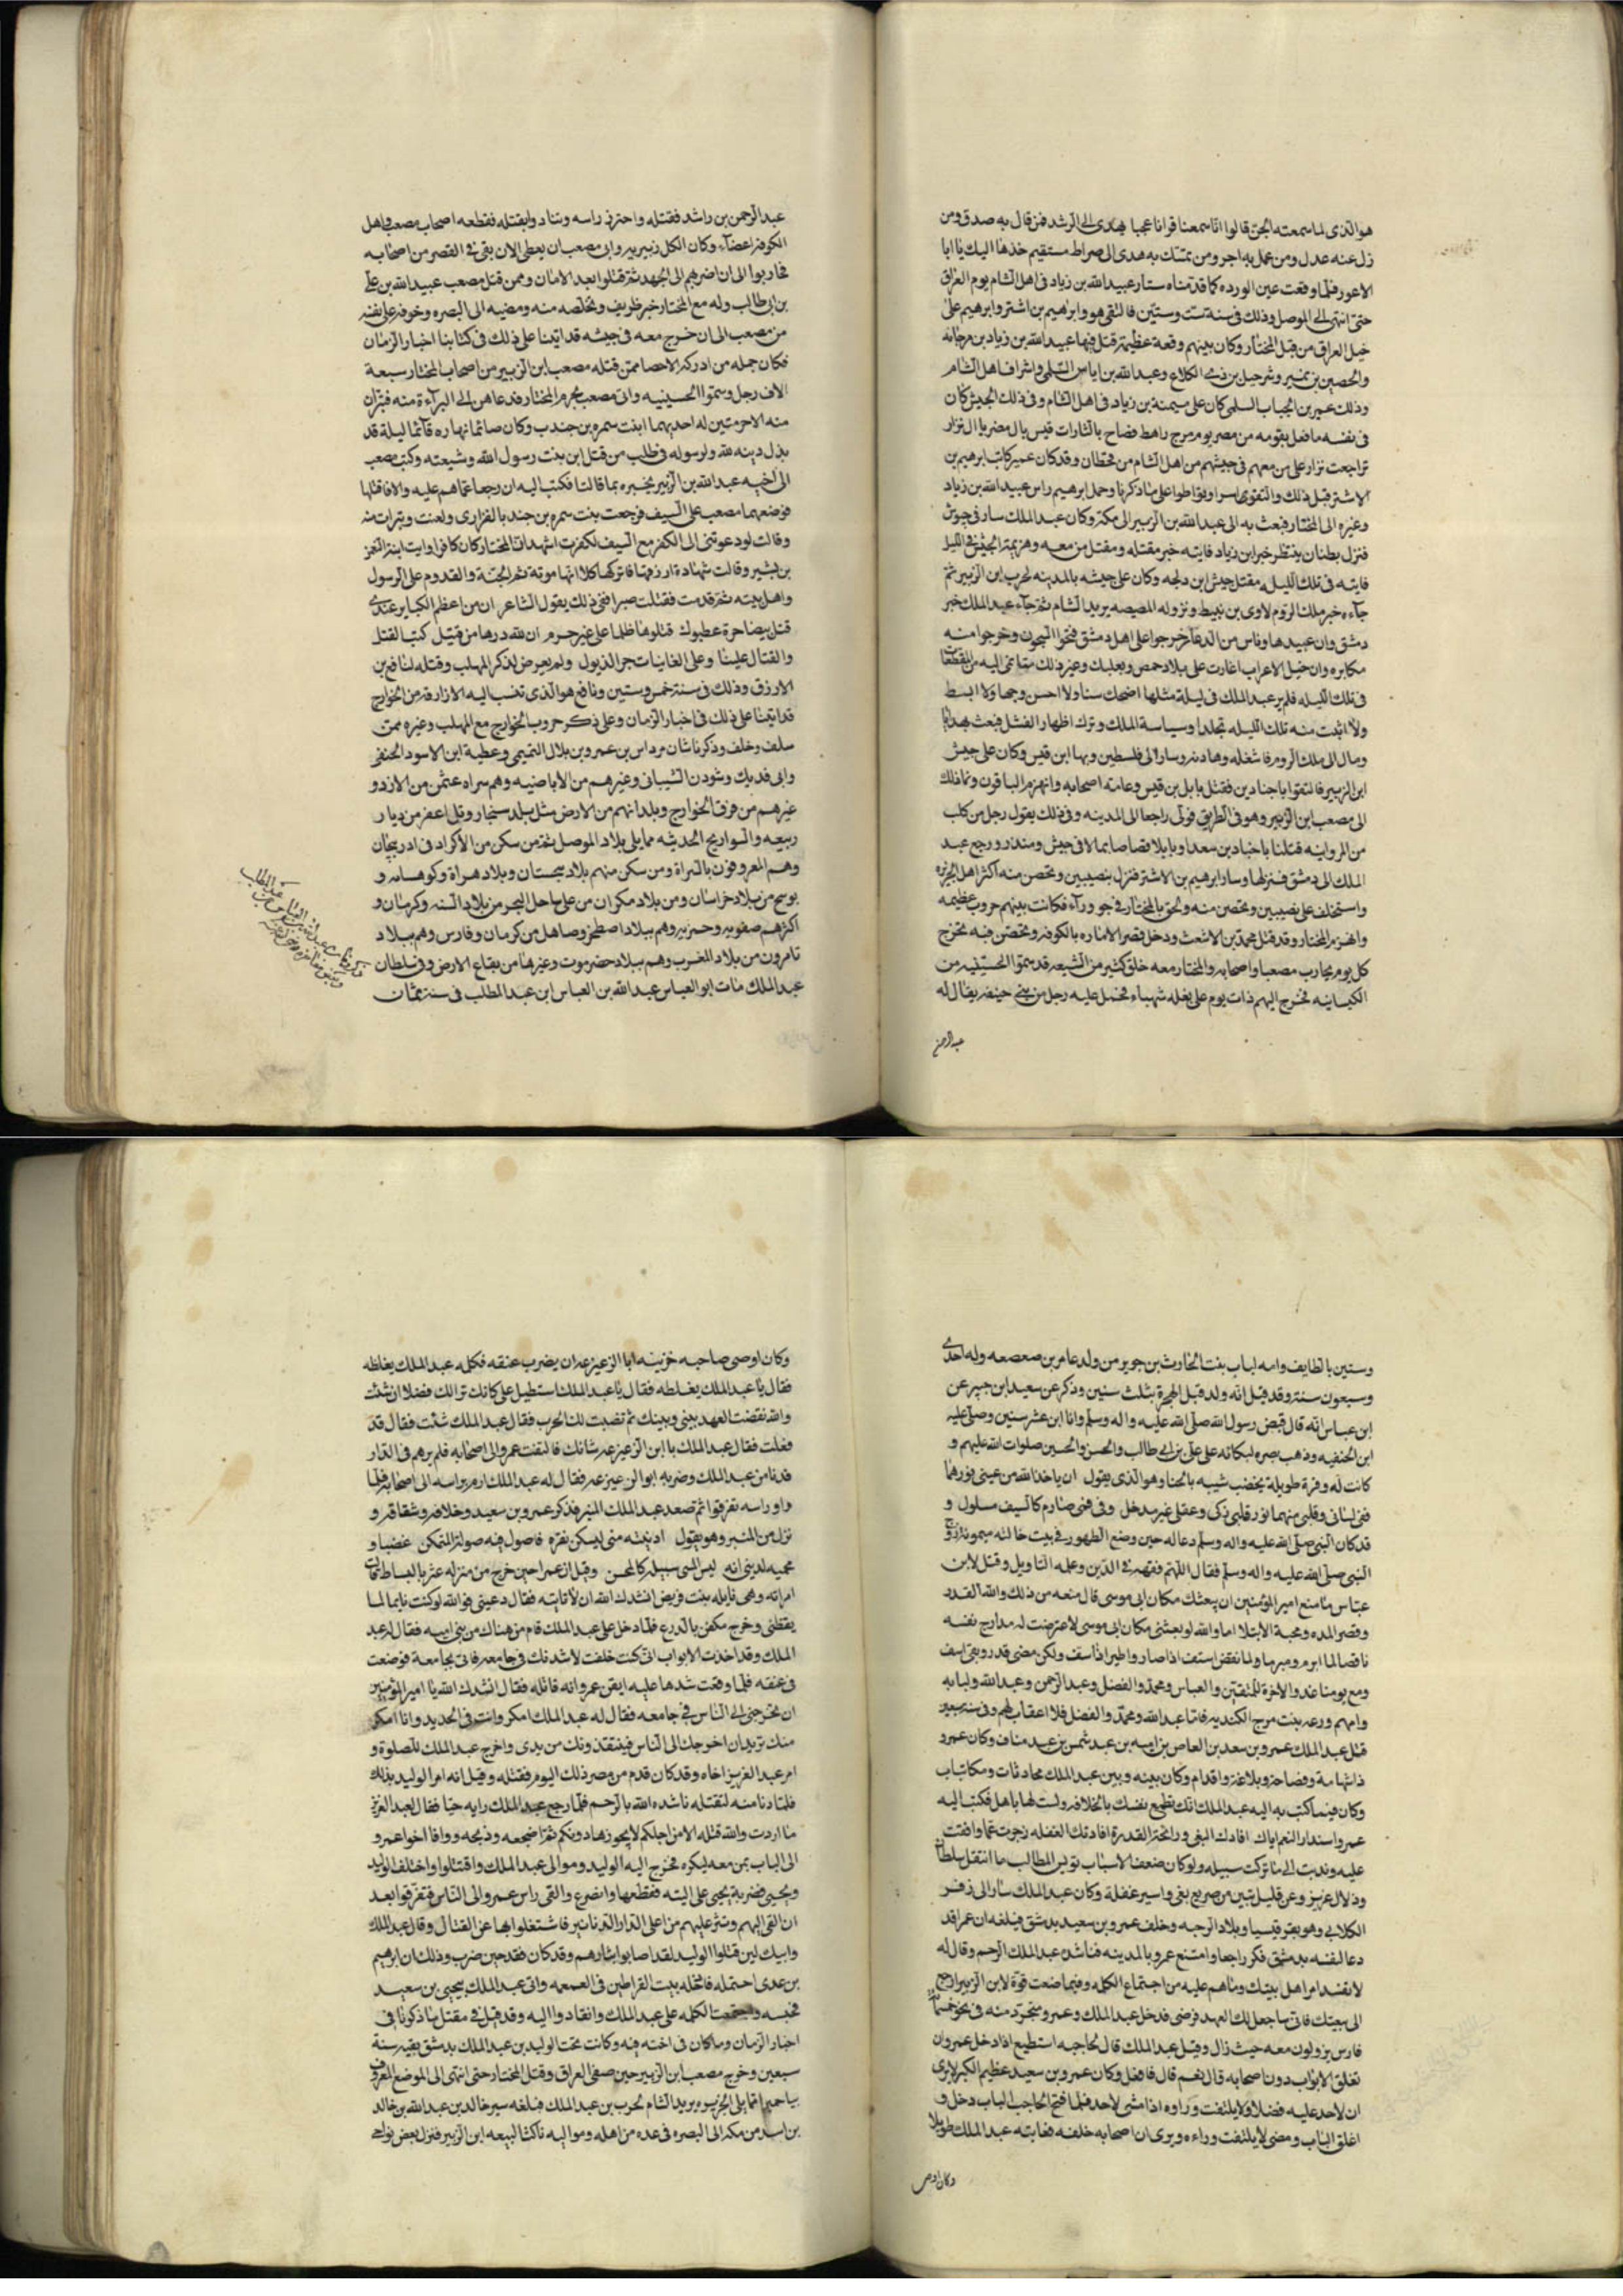 هو الذى لما سمعته الجن قالوا انا سمعنا قرانا عجبا يهدى الى الرشد فمن قال به صدق ومن
زل عنه عدل ومن عمل به اجر ومن تمسك به هدى الى صراط مستقيم خذها اليك يا ابا
الاعور فلما وقعت عين الورده كما قدمناه ستار عبيد الله بن زياد فى اهل الشام يوم العراق
حتى انتهى الى الموصل وذلك فى سنة ست وستين فالتقى هو وابرهيم بن اشتر وابرهيم على
خيل العراق من قبل المختار وكان بينهم وقعة عظيمة قتل فيها عبيد الله بن زياد بن مرجانه
والحصين بن نمير وشرحبل بن ذى الكلاع وعبد الله بن اياس السلمى واشراف اهل الشام
وذلك عمير بن الحباب السلمى كان على ميمنة بن زياد فى اهل الشام وفى ذلك الجيش كان
فى نفسه ما فعل بقومه من مضر يوم مرج راهط فصاح يا لثارات قيس يال مضر يا ال نزار
تراجعت نزار على من معهم فى جيشهم من اهل الشام من قحطان وقد كان عمير كاتب ابرهيم بن
الاشتر قبل ذلك والتقوى سرا وتواطوا على ما ذكرنا وحمل ابرهيم راس عبيد الله بن زياد
وغيره الى المختار فبعث به الى عبد الله بن الزبير الى مكة وكان عبد الملك سار فى جيوش
فنزل بطنان ينتظر خبر ابن زياد فاتيه خبر مقتله ومقتل من معه وهزيمة الجيش فى الليل
فاتيه فى تلك الليله مقتل جيش ابن دلجه وكان على جيشه بالمدينه لحرب ابن الزبير ثم
جاءه خبر ملك الروم لاوى بن نبيط ونزوله المصيصه يريد الشام ثم جاء عبد الملك خبر
دمشق وان عبيدها وناس من الدعار خرجوا على اهل دمشق فتحوا السجون وخرجوا منه
مكابره وان خيل الاعراب اغارت على بلاد حمص وبعلبك وغير ذلك مما نمى اليه من المقطعات
فى تلك الليله فلم ير عبد الملك فى ليلة مثلها اضحك سنا ولا احسن وجها ولا ابسط
ولا اثبت منه تلك الليله تجلدا وسياسة الملك وترك اظهار الفشل فبعث بهدايا
ومال الى ملك الروم فاشغله وهادنه وسار الى فلسطين وبها ابن قيس وكان على جيش
ابن الزبير فالتقوا باجنادين فقتل يا بل بن قيس وعامة اصحابه وانهزم الباقون ونما ذلك
الى مصعب ابن الزبير وهو فى الطريق فولى راجعا الى المدينه وفى ذلك يقول رجل من كلب
من المروانيه قتلنا باجنادين سعدا ويا بلا قصاصا بما لاقى جيش ومنذر ورجع عبد
الملك الى دمشق فنزلها وسار ابرهيم بن الاشتر فنزل بنصيبين وتحصن منه اكثر اهل الجزيره
واستخلف على نصيبين وتحصن منه ولحق بالمختار فى حوراء فكانت بينهم حروب عظيمه
وانهزم المختار وقد قتل محمد بن الاشعث ودخل قصر الاماره بالكوفه وتحصن فيه يخرج
كل يوم يحارب مصعبا واصحابه والمختار معه خلق كثير من الشيعه قد سموا الحسينيه من
الكيسانيه فخرج اليهم ذات يوم على بغله شهباء فحمل عليه رجل من بنى حنيفه يقال له
عبد الرحمن
عبد الرحمن بن راشد فقتله واحتز راسه وتنادوا بقتله فقطعه اصحاب مصعب واهل
الكوفه اعضاء وكان الكل زبيريه وابى مصعب ان يعطى الامان بقى فى القصر من اصحابه
فحاربوا الى ان اضرهم الى الجهد ثم قتلوا بعد الامان وممن قتل مصعب عبيد الله بن على
بن ابى طالب وله مع المختار خبر ظريف وتخلصه منه ومضيه الى البصره وخوفه على نفسه
من مصعب الى ان خرج معه فى جيشه قد اتينا على ذلك فى كتابنا اخبار الزمان
فكان جمله من ادركه الاحصا ممن قتله مصعب ابن الزبير من اصحاب المختار سبعة
الاف رجل وسموا الحسينيه واتى مصعب بحرم المختار فدعاهن الى البراءة منه فبران
منه الا حرمتين له احديهما ابنت سمره بن جندب وكان صائما نهاره قائما ليلة قد
بذل دينه لله ولرسوله فى طلب من قتل ابن بنت رسول الله وشيعته وكتب مصعب
الى اخيه عبد الله بن الزبير يخبره بما قالتا فكتب اليه ان رجعا عماهم عليه والا فاقتلها
فوضعهما مصعب على السيف فرجعت بنت سمره بن جندب الفزارى ولعنت وتبرات منه
وقالت لو دعوتنى الى الكفر مع السيف لكفرت اشهد ان المختار كان كافرا وابت ابنة النعمن
بن بشير وقالت شهادة ارزقها فاتركها كلا انها موتة ثم الجنة والقدوم على الرسول
واهل بيته ثم قدمت فقتلت صبرا ففى ذلك يقول الشاعر ان من اعظم الكباير عندى
قتل بيضا حرة عطبول قتلوها ظلما على غير جرم ان لله درها من قتيل كتب القتل
والقتال علينا وعلى الغانيات جر الذيول ولم يعرض لذكر المهلب وقتله لنافع بن
الازرق وذلك فى سنة خمس وستين ونافع هو الذى تنسب اليه الازارقه من الخوارج
قد اتينا على ذلك فى اخبار الزمان وعلى ذكر حروب الخوارج مع المهلب وغيره ممن
سلف وخلف وذكرنا شان مرداس بن عمرو بن بلال التميمى وعطية ابن الاسود الحنفى
وابى فديك وشوذن الشيبانى وغيرهم من الاباضيه وهم سراه عثمن من الازد و
غيرهم من فرق الخوارج وبلدانهم من الارض مثل بلد سنجار وتل اعفر من ديار
ربيعه والبوازيج الحديثه مما يلى بلاد الموصل ثم من سكن من الاكراد فى ادربيجان
وهم المعروفون بالسراة ومن سكن منهم بلاد سجستان وبلاد هراة وكوهساه و
بوسج من بلاد خراسان ومن بلاد مكران من على ساحل البحر من بلاد السند وكرمان و
اكثرهم صفويه وحمزيه وهم ببلاد اصطخر وصاهل من كرمان وفارس وهم ببلاد
تامرون من بلاد المغرب وهم ببلاد حضرموت وغيرها من بقاع الارض وفى سلطان
عبد الملك مات ابو العباس عبد الله بن العباس ابن عبد المطلب فى سنة ثمان
وستين بالطايف وامه لباب بنت الحارث بن جوير من ولد عامر بن صعصعه وله احدى
وسبعون سنة وقد قيل انه ولد قبل الهجرة بثلث سنين وذكر عن سعيد ابن جبير عن
ابن عباس انه قال قبض رسول الله صلى الله عليه واله وسلم وانا ابن عشر سنين وصلى عليه
ابن الحنفيه وذهب بصره لبكائه على على بن ابى طالب والحسن والحسين صلوات الله عليهم و
كانت له وفرة طويلة يخضب شيبه بالحنا وهو الذى يقول ان ياخذ الله من عينى نورهما
ففى لسانى وقلبى منهما نور قلبى ذكى وعقلى غير مدخل وفى فمى صارم كالسيف مسلول و
قد كان النبى صلى الله عليه واله وسلم دعا له حين وضع الطهور فى بيت خالته ميمونه زوج
النبى صلى الله عليه واله وسلم فقال اللهم فقهه فى الدين وعلمه التاويل وقيل لابن
عباس ما منع امير المؤمنين ان يبعثك مكان ابى موسى قال منعه من ذلك والله القدر
وقصر المده ومحبة الابتلا اما والله لو بعثنى مكان ابى موسى لاعترضت له مدارج نفسه
ناقضا لما ابرم ومبرما ولما نقض استف اذا صار واطير اذا سف ولكن مضى قدر وبقى اسف
ومع يومنا غد والاخرة للمتقين والعباس ومحمد والفضل وعبد الرحمن وعبد الله ولبابه
وامهم ورعه بنت مرج الكنديه فاما عبد الله ومحمد والفضل فلا اعقاب لهم وفى سنة سبعين
قتل عبد الملك عمرو بن سعد بن العاص بن اميه بن عبد شمس بن عبد مناف وكان عمرو
ذا شهامة وفصاحة وبلاغة واقدام وكان بينه وبين عبد الملك محادثات ومكاتبات
وكان فيما كتب به اليه عبد الملك انك تطمع نفسك بالخلافه ولست لها باهل فكتب اليه
عمرو استدار النعم اياك افادك البغى ورائحة القدرة افادتك الغفله زجرت عما وافقت
عليه وندبت الى ما تركت سبيله ولو كان ضعف الاسباب تويس المطالب ما انتقل سلطان
وذلال عزيز وعن قليل تبين من صريع بغى واسير غفلة وكان عبد الملك سار الى زفر
الكلابى وهو بقرقيسيا وبلاد الرحبه وخلف عمرو بن سعيد بدمشق فبلغه ان عمرا قد
دعا لنفسه بدمشق فكر راجعا وامتنع عمرو بالمدينه فناشده عبد الملك الرحم وقال له
لا تفسد امر اهل بيتك وما هم عليه من اجتماع الكلمه وفيما صنعت قوة لابن الزبير ارجع
الى بيعتك فانى ساجعل لك العهد فرضى فدخل عبد الملك وعمرو متحرز منه فى نحو خمسمائه
فارس يزولون معه حيث زال وقيل عبد الملك قال لحاجبه استطيع اذا دخل عمرو ان
تغلق الابواب دون اصحابه قال نعم قال فافعل وكان عمرو بن سعيد عظيم الكبر لا يرى
ان لاحد عليه فضلا ولا يلتفت وراوه اذا مشى لاحد فلما فتح الحاجب الباب دخل و
اغلق الباب ومضى لا يلتفت وراءه ويرى ان اصحابه خلفه فعاتبه عبد الملك طويلا
وكان اوصى
وكان اوصى صاحبه خزينه ابا الزعيزعه ان يضرب عنقه فكلمه عبد الملك يغلظه
فقال يا عبد الملك يغلظه فقال يا عبد الملك استطيل على كانك ترا لك فضلا ان شئت
والله نقضت العهد بينى وبينك ثم نصبت لك الحرب فقال عبد الملك شئت فقال قد
فعلت فقال عبد الملك يا ابن الزعيزعه شانك فالتفت عمرو الى اصحابه فلم يرهم فى الدار
فدنا من عبد الملك وضربه ابو الزعيزعه فقال له عبد الملك ارم براسه الى اصحابه فلما
راوا راسه تفرقوا ثم صعد عبد الملك المنبر فذكر عمرو بن سعيد وخلافه وشقاقه و
نزل من المنبر وهو يقول ادنيته منى ليسكن نفره فاصول فيه صولة المتمكن غضبا و
محميه لدينى انه ليس المسى سبيله كالمحسن وقيل ان عمرا حين خرج من منزله عثر بالبساط فقالت
امراته وهى نايله بنت فريض انشدك الله ان لا تاتيه فقال دعينى فوالله لو كنت نايما لما
يقظنى وخرج مكفن بالدرع فلما دخل على عبد الملك قام من هناك من بنى اميه فقال له عبد
الملك وقد اخذت الابواب انى كنت خلفت لاشدنك فى جامعه فاتى بجامعة فوضعت
فى عنقه فلما وقعت شدها عليه ايقن عمرو انه قاتله فقال انشدك الله يا امير المؤمنين
ان تخرجنى الى الناس فى جامعه فقال له عبد الملك امكر وانت فى الحديد وانا امكر
منك تريد ان اخرجك الى الناس فيتنقذونك من يدى واخرج عبد الملك للصلوة و
امر عبد العزيز اخاه وقد كان قدم من مصر ذلك اليوم فقتله وقيل انه امر الوليد بذلك
فلما دنا منه لنقتله ناشده الله بالرحم فلما رجع عبد الملك رايه حيا فقال لعبد العزيز
ما اردت والله قتله الا من اجلكم لا يحوزها دونكم ثم اضجعه وذبحه ووافا اخو عمرو
الى الباب بمن معه ليكره فخرج اليه الوليد وموالى عبد الملك واقتتلوا واختلف الوليد
ويحيى فضربة يحيى على اليته فقطعها وانصرع والقى راس عمرو الى الناس فتفرقوا بعد
ان القى اليهم ونثر عليهم من اعلى الدار الدنانير فاشتغلوا بها عن القتال وقال عبد الملك
وابيك لين قتلوا الوليد لقد اصابوا بثارهم وقد كان فقد حين ضرب وذلك ان ابرهيم
بن عدى احتمله فادخله بيت القراطين فى المعمعه واتى عبد الملك بيحيى بن سعيد
فحبسه واجتمعت الكلمه على عبد الملك وانقادوا اليه وقد قيل فى مقتل ما ذكرنا فى
اخبار الزمان وما كان فى اخته فيه وكانت تحت الوليد بن عبد الملك بدمشق بقيه سنة
سبعين وخرج مصعب ابن الزبير حين صفى العراق وقتل المختار حتى انتهى الى الموضع المعروف
بباجميرا مما يلى الجزيره يريد الشام لحرب بن عبد الملك فبلغه سير خالد بن عبد الله بن خالد
بن اسد من مكه الى البصره فى عده من اهله ومواليه ناكثا لبيعه ابن الزبير فنزل بعض نواحى